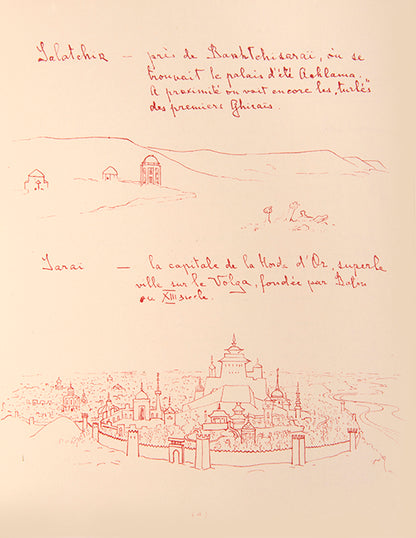 Salatchik — près de Baghtchisaraï, où se
trouvait le palais d'été Achlama.
A proximité on voit encore les „turbés"
des premiers Ghiraïs.
Saraï — la capitale de la Horde d'Or, superbe
ville sur le Volga, fondée par
au XIII siècle.